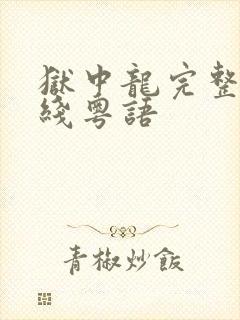 獄中龍完整
綫粵語
青椒炒飯